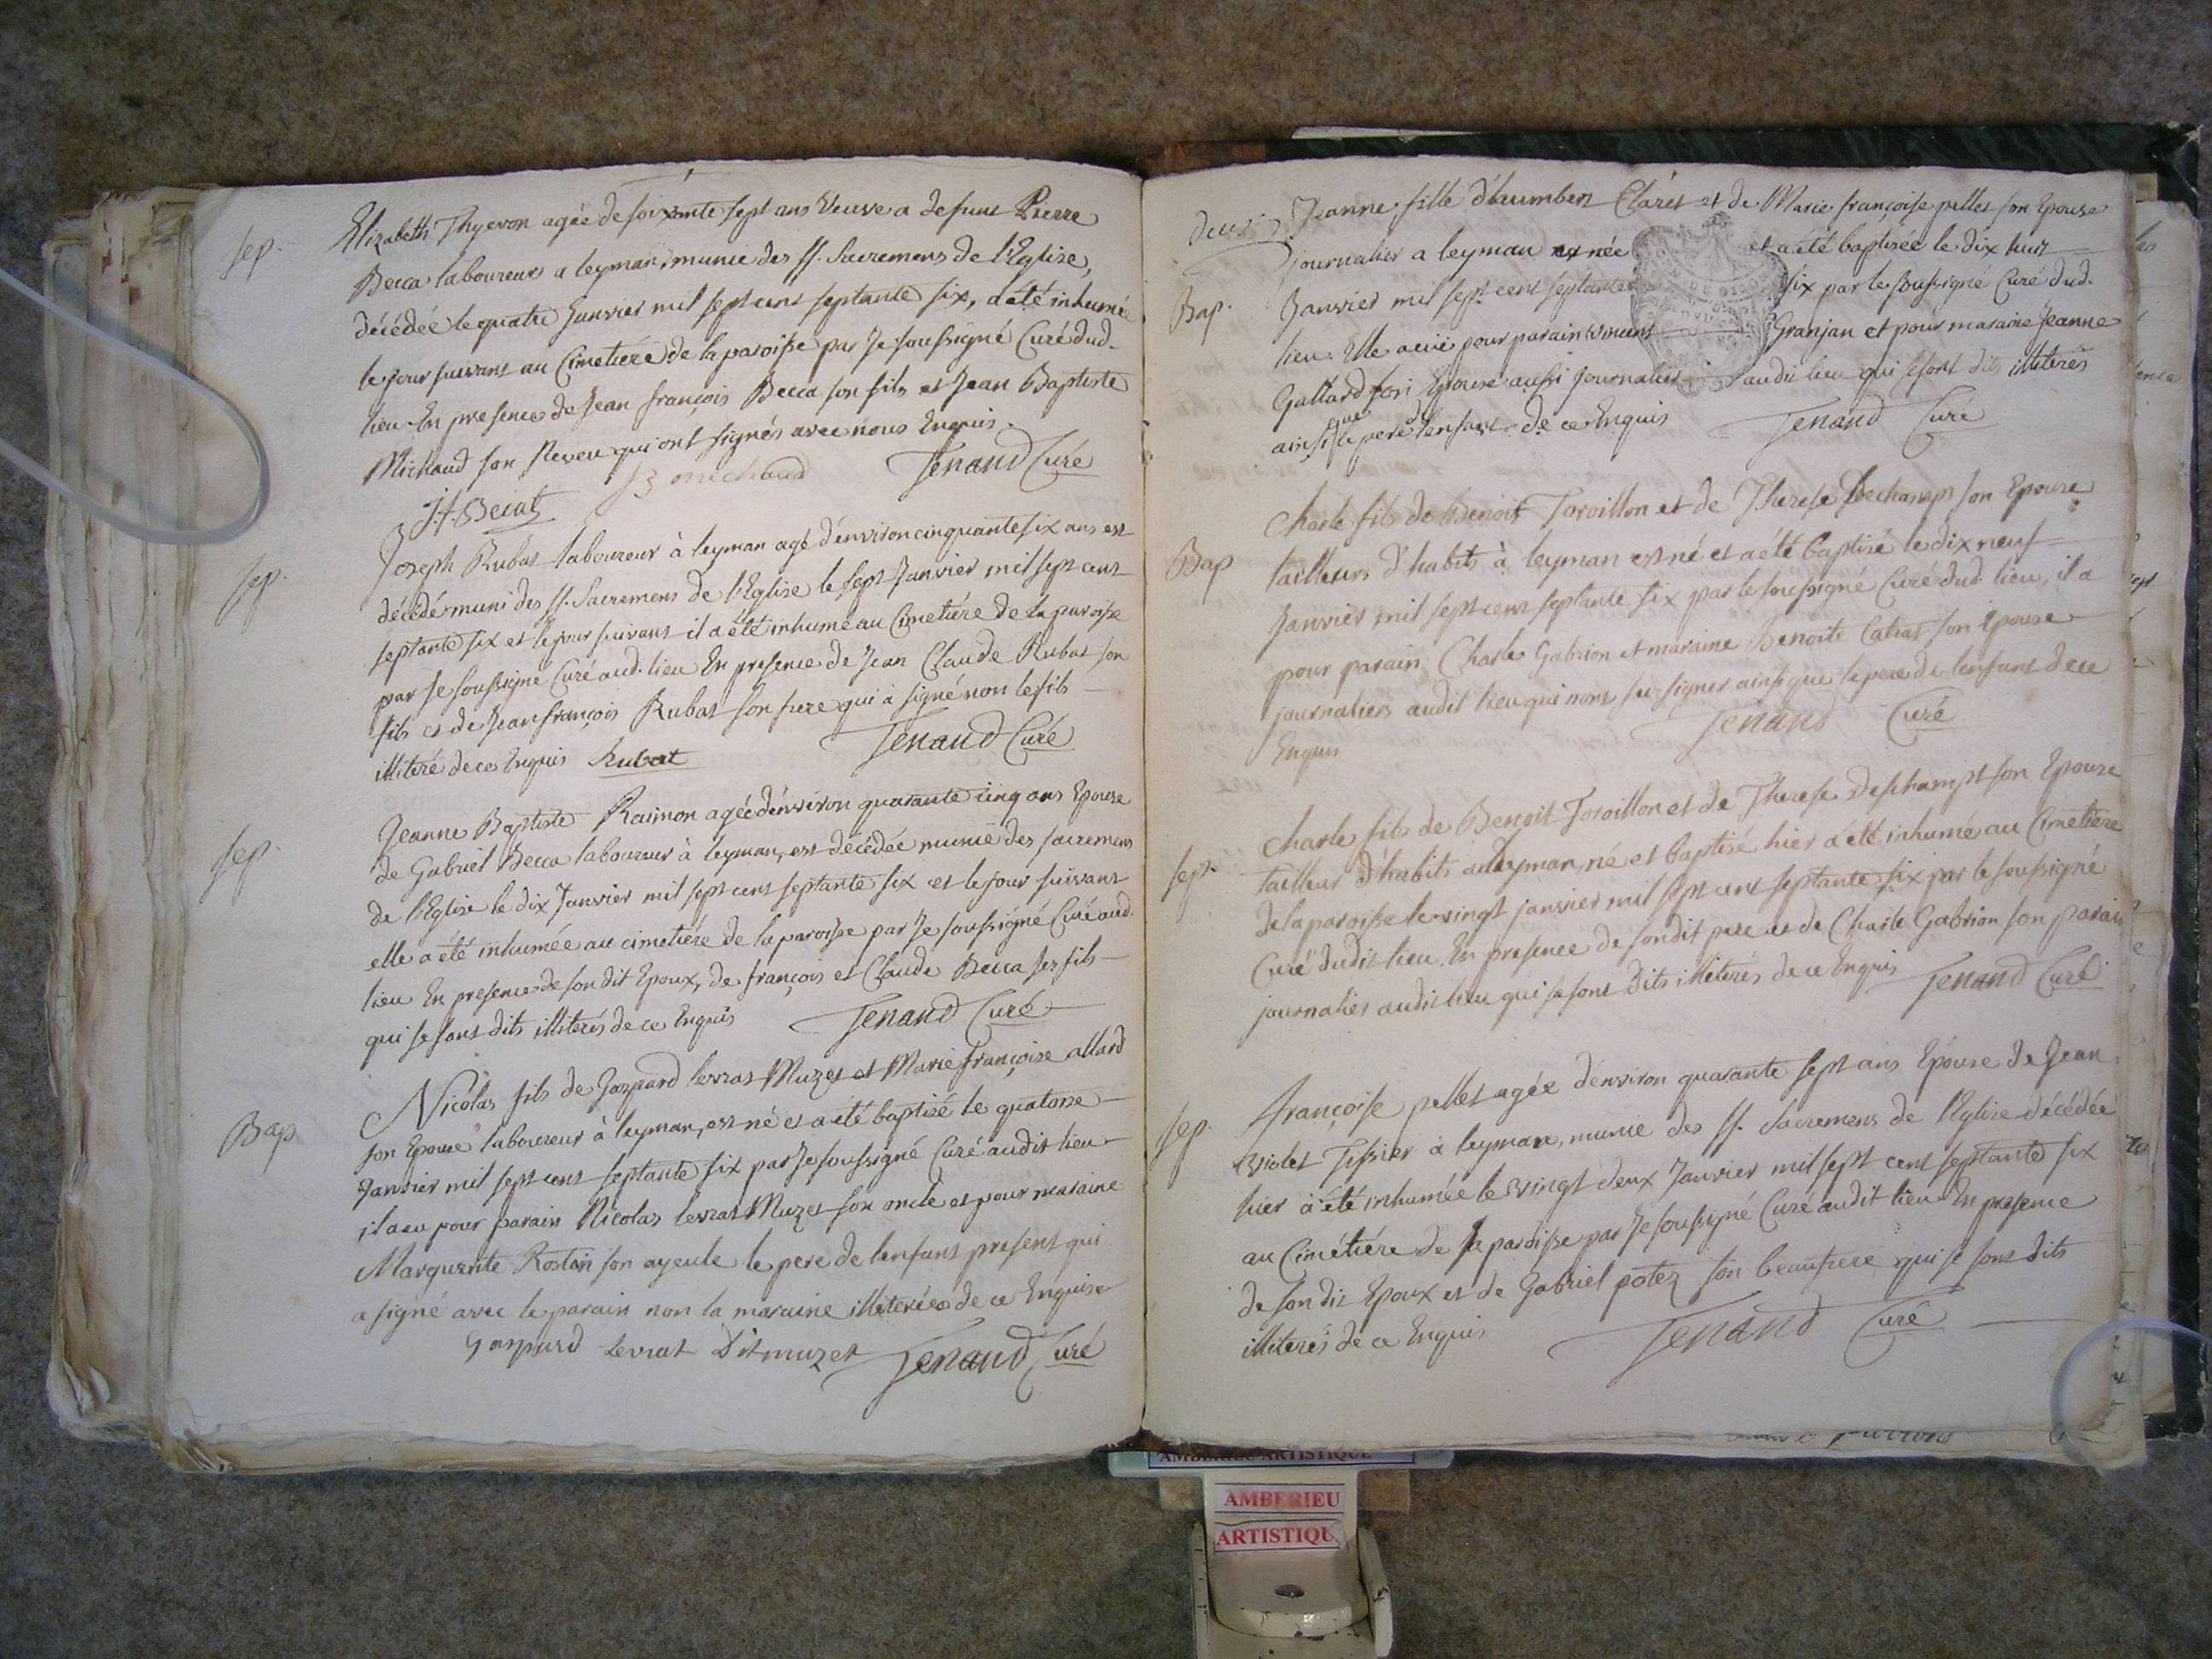 Sep.
Elizabeth Thyevon agée de soixante sept ans Veuve a defunt Pierre
Becca laboureur a leyman, munie des SS. Sacremens de l'Eglise,
décédée le quatre Janvier mil sept cent septante six, a été inhumée
le jour suivant au Cimetière de la paroisse par Je soussigné Curé dud.
lieu En presence de Jean françois Becca son fils et Jean Baptiste
Michaud son Neveu qui ont signés avec nous Enquis.
J B michaud Tenand Curé
J. f. Becat
Sep.
Joseph Rubat laboureur à leyman agé d'environ cinquante six ans est
décédé muni des SS. Sacremens de l'Eglise le sept Janvier mil sept cent
septante six et le jour suivant il a été inhumé au Cimetière de la paroisse
par Je soussigné Curé aud. lieu En presence de Jean Claude Rubat son
fils et de Jean françois Rubat son frere qui à signé non le fils
illiteré de ce Enquis Rubat Tenand Curé
Sep.
Jeanne Baptiste Raimon agée d'environ quarante cinq ans Epouse
de Gabriel Becca laboureur à leyman, est décédée munie des sacremens
de l'Eglise le dix Janvier mil sept cent septante six et le jour suivant
elle a été inhumée au cimetière de la paroisse par Je soussigné Curé aud.
lieu En presence de son dit Epoux, de françois et Claude Becca ses fils
qui se sont dits illiterés de ce Enquis Tenand Curé
Bap
Nicolas fils de Gaspard levrat Muzet et Marie françoise allard
son Epouse laboureur à leyman, est né et a été baptisé le quatorze
Janvier mil sept cent septante six par Je soussigné Curé audit lieu
il a eu pour parain Nicolas levrat Muzet son oncle et pour maraine
Marguerite Rostan son ayeule le pere de l'enfant present qui
a signé avec le parain non la maraine illiterée de ce Enquise
Gaspard Levrat Dit muzet Tenand Curé
deux
Jeanne, fille d'humbert Claret et de Marie françoise pellet son Epouse
journalier a leyman est née et a été baptisée le dix huit
Bap.
Janvier mil sept cent septante six par le soussigné Curé dud.
lieu. Elle a eu pour parain Vincent Granjan et pour maraine Jeanne
Gallard son Epouse aussi journalier audit lieu qui se sont dits illiterés
ainsi que le pere de l'enfant de ce Enquis Tenand Curé
Bap
Charle fils de Benoit Toroillon et de Therese Dechamps son Epouse
tailleurs d'habits à leyman est né et a été baptisé le dix neuf
Janvier mil sept cent septante six par le soussigné Curé dud. lieu, il a
pour parain, Charle Gabrion et maraine Benoite Catrat son Epouse
journaliers audit lieu qui n'ont su signer ainsi que le pere de l'enfant de ce
Enquis Tenand Curé
Sep.
Charle fils de Benoit Toroillon et de Therese Deschampt son Epouse
tailleur d'habits a leyman, né et baptisé hier a été inhumé au Cimetière
de la paroisse le vingt janvier mil sept cent septante six par le soussigné
Curé dudit lieu. En presence de sondit pere et de Charle Gabrion son parain
journalier audit lieu qui se sont dits illiterés de ce Enquis Tenand Curé
Sep.
françoise pellet agée d'environ quarante sept ans Epouse de Jean
Violet Tissier à leyman, munie des SS. Sacremens de l'Eglise décédée
hier a été inhumée le vingt deux Janvier mil sept cent septante six
au Cimétière de la paroisse par Je soussigné Curé audit lieu En presence
de son dit Epoux et de Gabriel potez son beaufrere qui se sont dits
illiterés de ce Enquis Tenand Curé
AMBERIEU ARTISTIQUE
AMBERIEU
ARTISTIQU